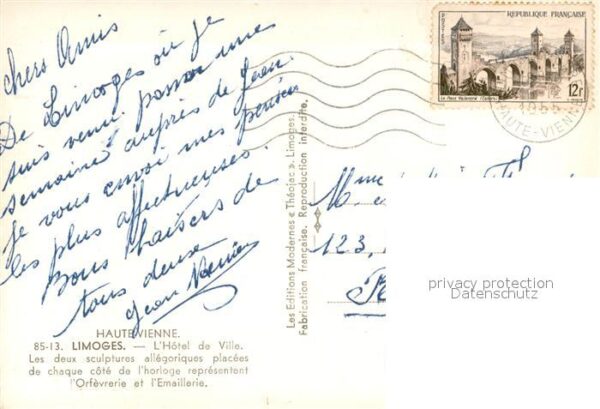 Chers Amis
De Limoges où je
suis venu passer une
semaine auprès de Jean
je vous envoi mes pensées
les plus affectueuses.
Bons baisers de
tous deux
Jean
HAUTE-VIENNE.
85-13. LIMOGES. — L'Hôtel de Ville.
Les deux sculptures allégoriques placées
de chaque côté de l'horloge représentent
l'Orfèvrerie et l'Emaillerie.
Les Editions Modernes « Théojac ». Limoges.
Fabrication française. Reproduction interdite.
POSTES
REPUBLIQUE FRANÇAISE
Le Pont Valentré (Cahors)
12F
HAUTE-VIENNE
Mme
123,
privacy protection
Datenschutz